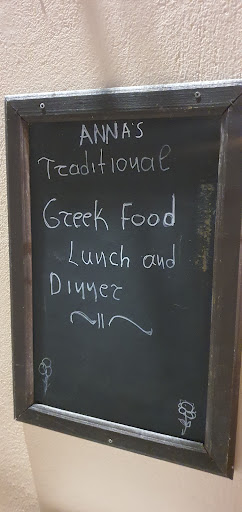 ANNA'S
Traditional
Greek Food
Lunch and
Dinner
~II~